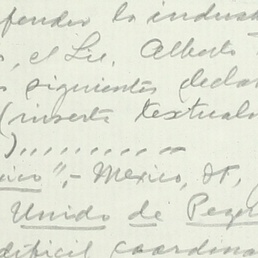 fender la indust
, el Lic. Alberto
s siguientes declar
(inserte textual
),,,,,,,,, "
ico",- Mexico, DF,
Unido de Peq
dificil coordina